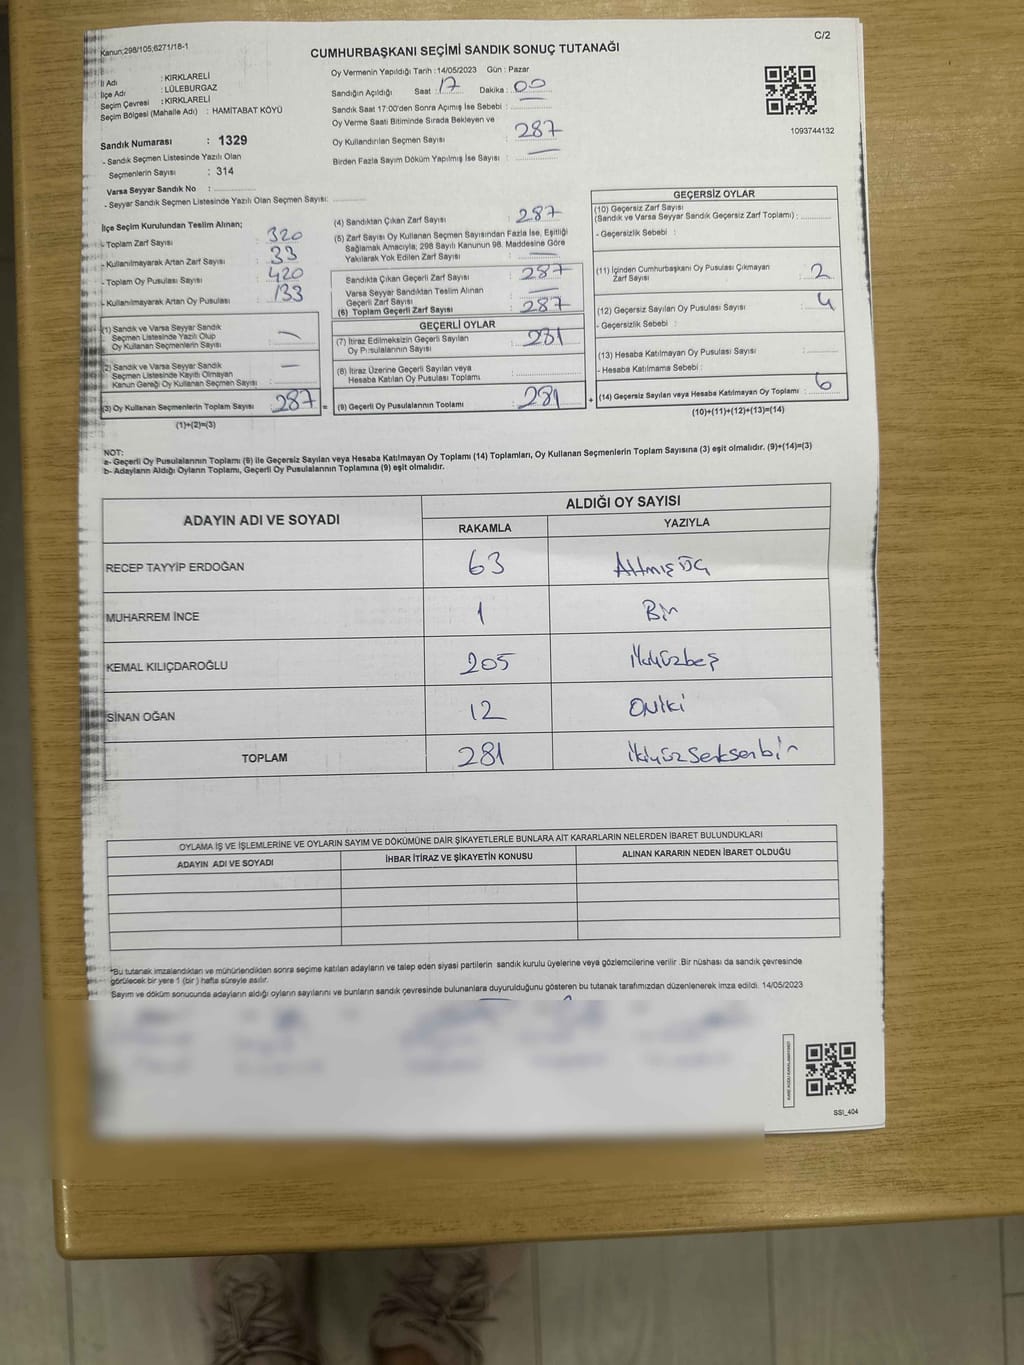 Kanun;298/105;6271/18-1
C/2
CUMHURBAŞKANI SEÇİMİ SANDIK SONUÇ TUTANAĞI
İl Adı : KIRKLARELİ
İlçe Adı : LÜLEBURGAZ
Seçim Çevresi : KIRKLARELİ
Seçim Bölgesi (Mahalle Adı) : HAMİTABAT KÖYÜ
Sandık Numarası : 1329
- Sandık Seçmen Listesinde Yazılı Olan
Seçmenlerin Sayısı : 314
Varsa Seyyar Sandık No :
- Seyyar Sandık Seçmen Listesinde Yazılı Olan Seçmen Sayısı:
Oy Vermenin Yapıldığı Tarih :14/05/2023 Gün : Pazar
Sandığın Açıldığı Saat : 17 Dakika : 00
Sandık Saat 17:00'den Sonra Açımış İse Sebebi :
Oy Verme Saati Bitiminde Sırada Bekleyen ve
Oy Kullandırılan Seçmen Sayısı : 287
Birden Fazla Sayım Döküm Yapılmış İse Sayısı :
1093744132
İlçe Seçim Kurulundan Teslim Alınan;
- Toplam Zarf Sayısı : 320
- Kullanılmayarak Artan Zarf Sayısı : 33
- Toplam Oy Pusulası Sayısı : 420
- Kullanılmayarak Artan Oy Pusulası : 133
(1) Sandık ve Varsa Seyyar Sandık
Seçmen Listesinde Yazılı Olup
Oy Kullanan Seçmenlerin Sayısı : —
(2) Sandık ve Varsa Seyyar Sandık
Seçmen Listesinde Kayıtlı Olmayan
Kanun Gereği Oy Kullanan Seçmen Sayısı : —
(3) Oy Kullanan Seçmenlerin Toplam Sayısı : 287
(1)+(2)=(3)
(4) Sandıktan Çıkan Zarf Sayısı : 287
(5) Zarf Sayısı Oy Kullanan Seçmen Sayısından Fazla İse, Eşitliği
Sağlamak Amacıyla; 298 Sayılı Kanunun 98. Maddesine Göre
Yakılarak Yok Edilen Zarf Sayısı : —
Sandıkta Çıkan Geçerli Zarf Sayısı : 287
Varsa Seyyar Sandıktan Teslim Alınan
Geçerli Zarf Sayısı : —
(6) Toplam Geçerli Zarf Sayısı : 287
GEÇERLİ OYLAR
(7) İtiraz Edilmeksizin Geçerli Sayılan
Oy Pusulalarının Sayısı : 281
(8) İtiraz Üzerine Geçerli Sayılan veya
Hesaba Katılan Oy Pusulası Toplamı :
(9) Geçerli Oy Pusulalarının Toplamı : 281
GEÇERSİZ OYLAR
(10) Geçersiz Zarf Sayısı
(Sandık ve Varsa Seyyar Sandık Geçersiz Zarf Toplamı) :
- Geçersizlik Sebebi :
(11) İçinden Cumhurbaşkanı Oy Pusulası Çıkmayan
Zarf Sayısı : 2
(12) Geçersiz Sayılan Oy Pusulası Sayısı : 4
- Geçersizlik Sebebi :
(13) Hesaba Katılmayan Oy Pusulası Sayısı :
- Hesaba Katılmama Sebebi :
(14) Geçersiz Sayılan veya Hesaba Katılmayan Oy Toplamı : 6
(10)+(11)+(12)+(13)=(14)
NOT:
a- Geçerli Oy Pusulalarının Toplamı (9) ile Geçersiz Sayılan veya Hesaba Katılmayan Oy Toplamı (14) Toplamları, Oy Kullanan Seçmenlerin Toplam Sayısına (3) eşit olmalıdır. (9)+(14)=(3)
b- Adayların Aldığı Oyların Toplamı, Geçerli Oy Pusulalarının Toplamına (9) eşit olmalıdır.
ADAYIN ADI VE SOYADI ALDIĞI OY SAYISI
RAKAMLA YAZIYLA
RECEP TAYYİP ERDOĞAN 63 Altmış üç
MUHARREM İNCE 1 Bir
KEMAL KILIÇDAROĞLU 205 İkiyüzbeş
SİNAN OĞAN 12 Oniki
TOPLAM 281 İkiyüzseksenbir
OYLAMA İŞ VE İŞLEMLERİNE VE OYLARIN SAYIM VE DÖKÜMÜNE DAİR ŞİKAYETLERLE BUNLARA AİT KARARLARIN NELERDEN İBARET BULUNDUKLARI
ADAYIN ADI VE SOYADI İHBAR İTİRAZ VE ŞİKAYETİN KONUSU ALINAN KARARIN NEDEN İBARET OLDUĞU
*Bu tutanak imzalandıktan ve mühürlendikten sonra seçime katılan adayların ve talep eden siyasi partilerin sandık kurulu üyelerine veya gözlemcilerine verilir .Bir nüshası da sandık çevresinde
görülecek bir yere 1 (bir ) hafta süreyle asılır.
Sayım ve döküm sonucunda adayların aldığı oyların sayılarını ve bunların sandık çevresinde bulunanlara duyurulduğunu gösteren bu tutanak tarafımızdan düzenlenerek imza edildi. 14/05/2023
SSİ_404